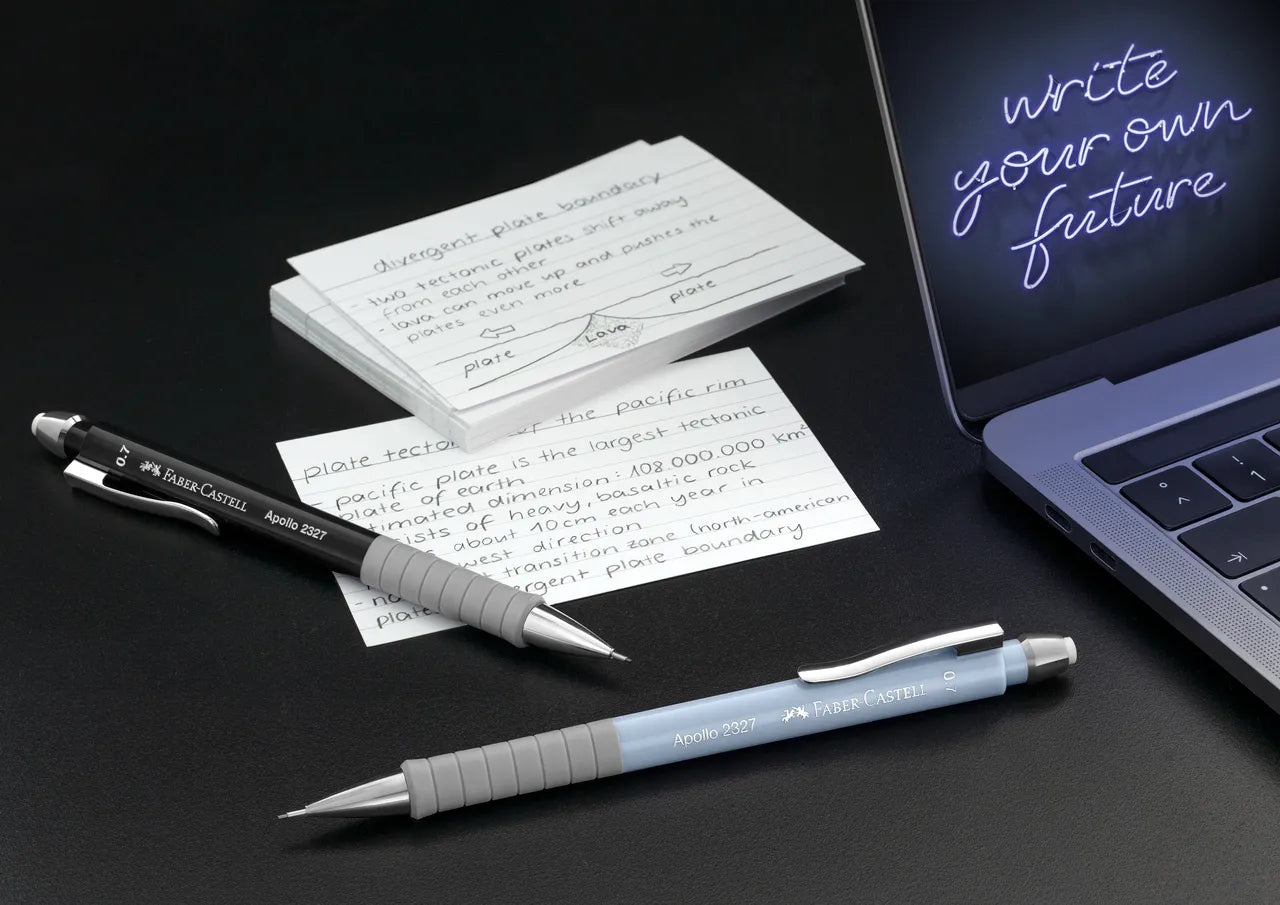 write
your own
future
divergent plate boundary
- two tectonic plates shift away
from each other
- lava can move up and pushes the
plates even more
plate
Lava
plate
plate of the pacific rim
- pacific plate is the largest tectonic
plate of earth
dimension: 108.000.000 km²
of heavy, basaltic rock
about 10cm each year in
west direction
transition zone (north-american
plate boundary
0.7
FABER-CASTELL
Apollo 2327
Apollo 2327
FABER-CASTELL
0.7